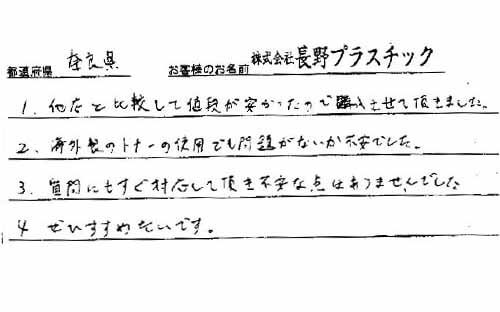 都道府県 奈良県 お客様のお名前 株式会社 長野プラスチック
1. 他店と比較して値段が安かったので購入させて頂きました。
2. 海外製のトナーの使用でも問題がないか不安でした。
3. 質問にもすぐ対応して頂き不安な点はありませんでした
4 ぜひすすめたいです。